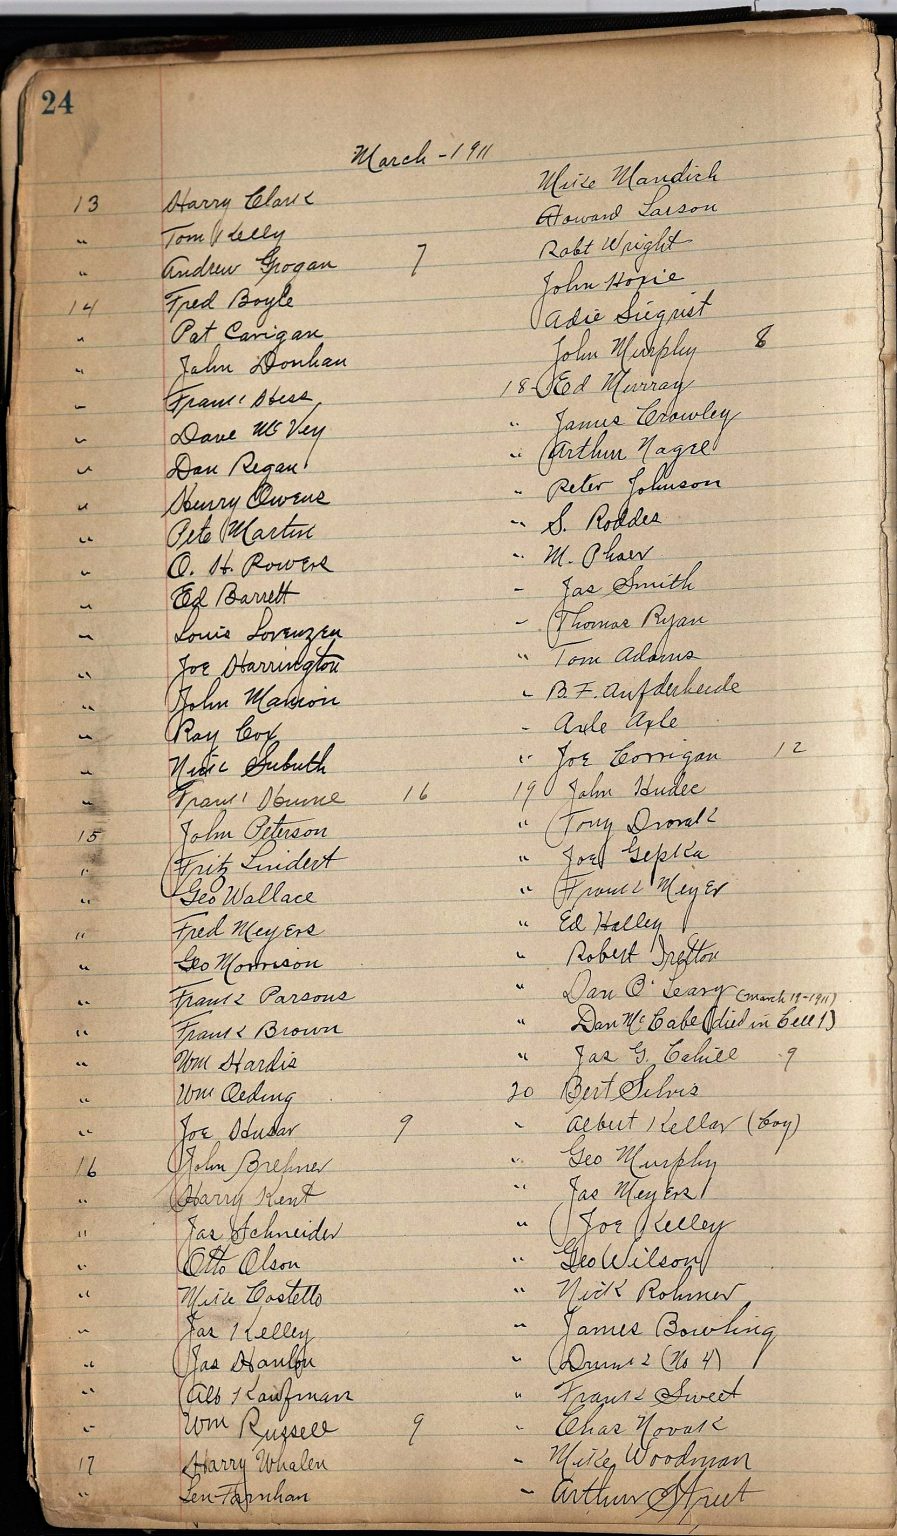 24
March - 1911
13 Harry Clark
" Tom Kelly
" Andrew Grogan 7
14 Fred Boyle
" Pat Carigan
" John Donhan
" Frank Hess
" Dave McVey
" Dan Regan
" Henry Owens
" Pete Martin
" O. H. Rowers
" Ed Barrett
" Louis Lorenzen
" Joe Harrington
" John Manion
" Ray Cox
" Nick Subuth
" Frank Hume 16
15 John Peterson
" Fritz Lindert
" Geo Wallace
" Fred Meyers
" Geo Morrison
" Frank Parsons
" Frank Brown
" Wm Hardis
" Wm Oeding
" Joe Husar 9
16 John Brehner
" Harry Kent
" Jas Schneider
" Otto Olson
" Mike Costello
" Jas Kelley
" Jas Hanlon
" Alb Kaufman
" Wm Russell 9
17 Harry Whalen
" Len Farnhan
Mike Mandich
Howard Larson
Robt Wright
John
Adie Siegrist
John Murphy 8
18 - Ed Murray
" James Crowley
" Arthur Nagle
" Peter Johnson
" S. Roddes
" M. Phaer
" Jas Smith
" Thomas Ryan
" Tom Adams
" B. F. Aufderheide
" Axle Axle
" Joe Corrigan 12
19 John Hudec
" Tony Dvorak
" Joe Gepka
" Frank Meyer
" Ed Halley
" Robert
" Dan O'Leary (March 19-1911)
" Dan McCabe (died in Cell 1)
" Jas G. Cahill 9
20 Bert Silvis
" Albert Kellar (boy)
" Geo Murphy
" Jas Meyers
" Joe Kelley
" Geo Wilson
" Nick Rohmer
" James Bowling
" Drunk (No 4)
" Frank Sweet
" Chas Novak
" Mike Woodman
" Arthur Street